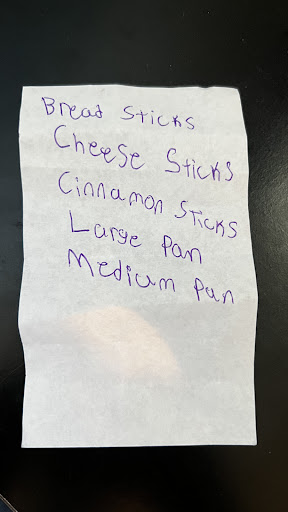 Bread Sticks
Cheese Sticks
Cinnamon Sticks
Large Pan
Medium Pan